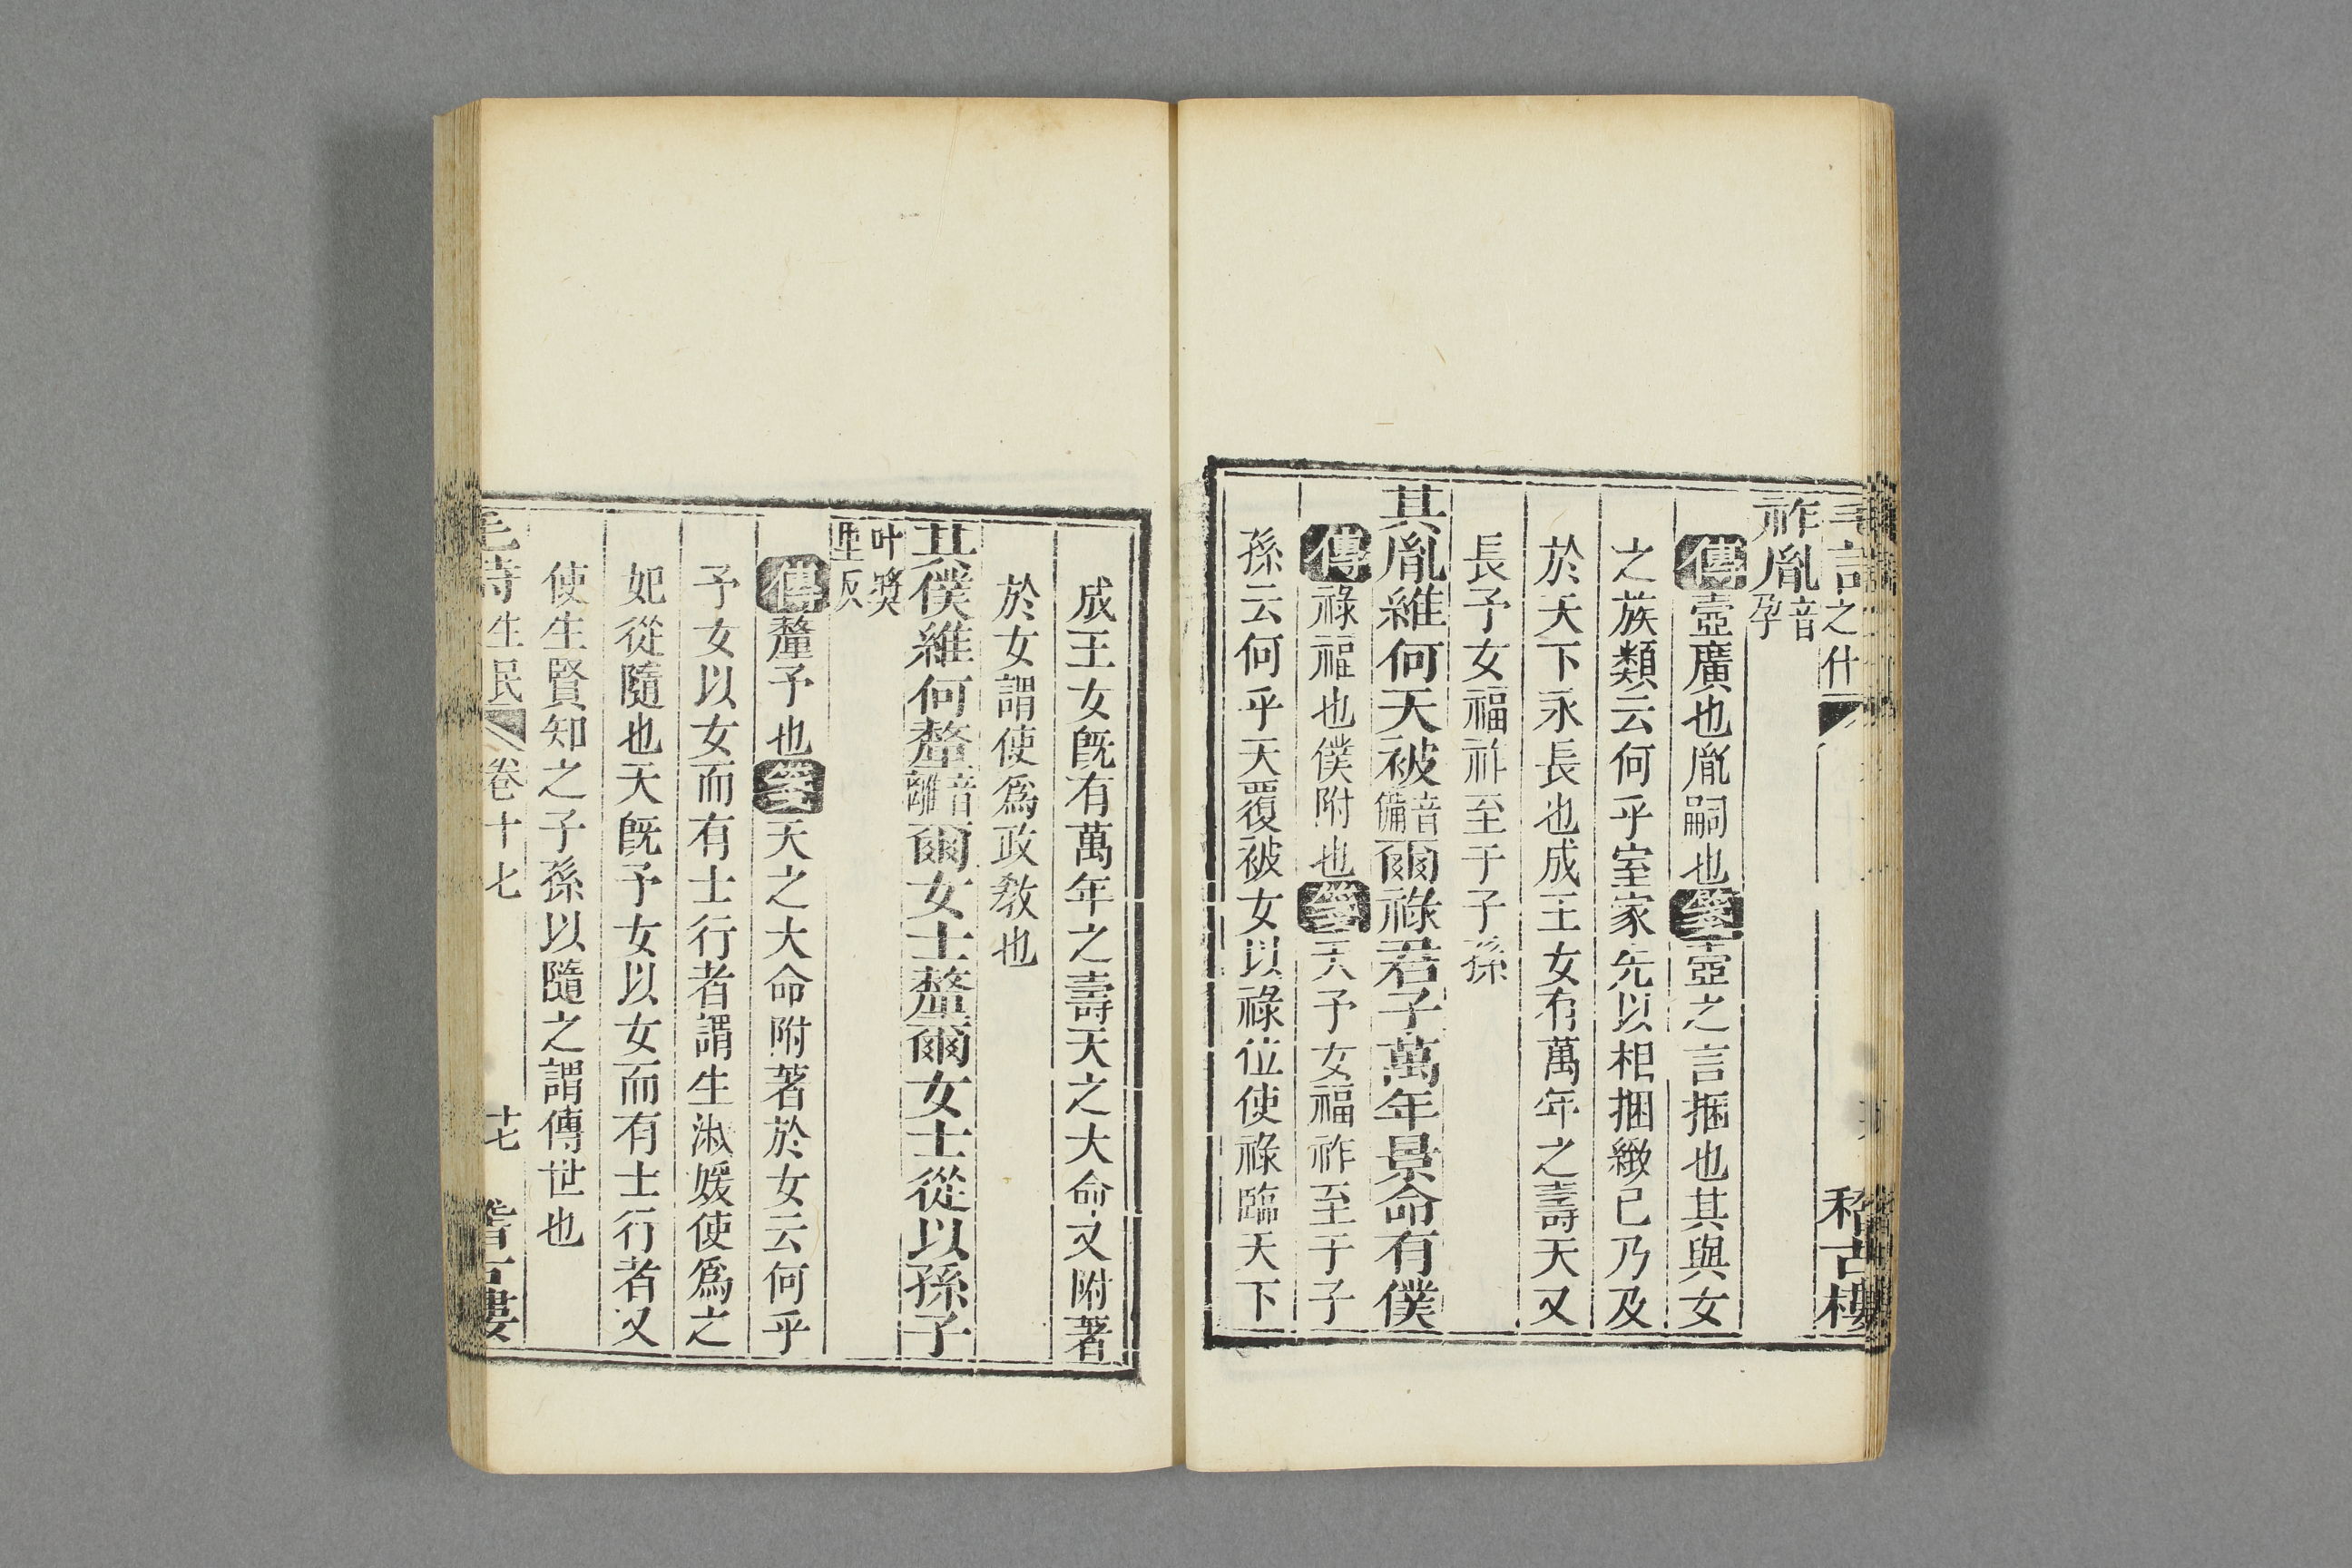 毛詩之什 稽古樓
祚胤音孕
傳壼廣也胤嗣也箋壼之言捆也其與女
之族類云何乎室家先以相捆緻已乃及
於天下永長也成王女有萬年之壽天又
長予女福祚至于子孫
其胤維何天被音備爾祿君子萬年景命有僕
傳祿福也僕附也箋天予女福祚至于子
孫云何乎天覆被女以祿位使祿臨天下
成王女旣有萬年之壽天之大命又附著
於女謂使爲政敎也
其僕維何釐音離爾女士釐爾女士從以孫子
叶獎里反
傳釐予也箋天之大命附著於女云何乎
予女以女而有士行者謂生淑媛使爲之
妃從隨也天旣予女以女而有士行者又
使生賢知之子孫以隨之謂傳世也
毛詩生民 卷十七 十七 稽古樓